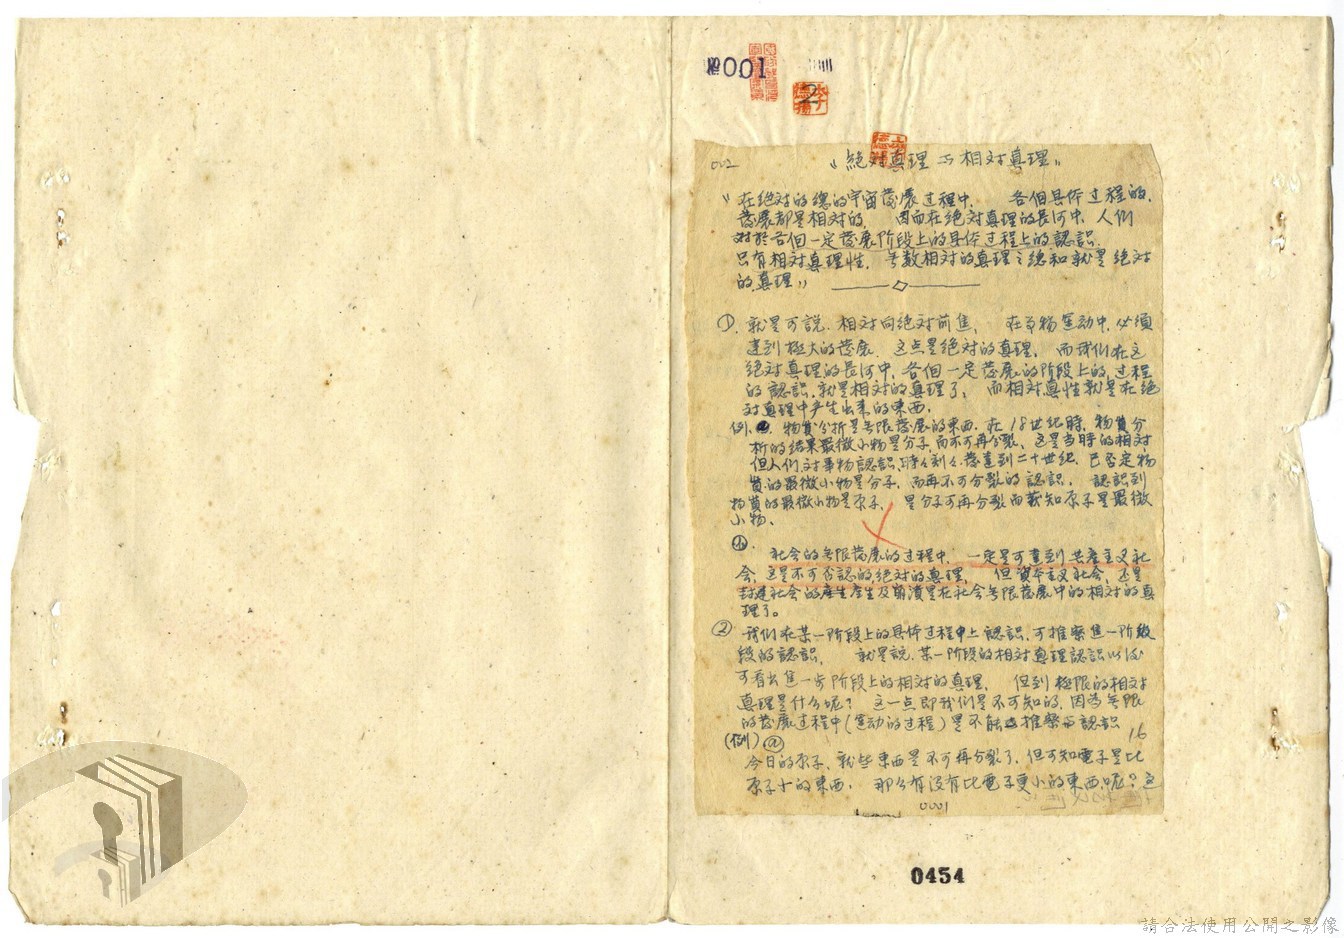 001
2
002
"絶対真理与相対真理"
"在絶対的總的宇宙發展过程中, 各個具体过程的,
發展都是相対的, 因而在絶対真理的長河中, 人们
対於各個一定發展阶段上的具体过程上的認識,
只有相対真理性, 無数相対的真理之總和就是絶対
的真理"
①. 就是可説, 相対向絶対前進, 在事物運动中, 必須
達到極大的發展. 这点是絶対的真理, 而我们在这
絶対真理的長河中, 各個一定發展的阶段上的, 过程
的認識, 就是相対的真理了, 而相対真性就是在絶
対真理中产生出来的東西,
例. 物質分折是無限發展的東西. 在18世紀時, 物質分
析的结果最微小物是分子, 而不可再分裂, 这是当時的相対
但人们対事物認識, 時々刻々發達到二十世紀, 已否定物
質的最微小物是分子, 而再不可分裂的認識, 認識到
物質的最微小物是原子, 是分子可再分裂而載知原子是最微
小物.
社会的無限發展的过程中, 一定是可達到共產主义社
会, 这是不可否認的絶対的真理, 但資本主义社会, 还是
封建社会的產生及崩潰是在社会無限發展中的相対的真
理了。
② 我们在某一阶段上的具体过程中上認識, 可推察進一阶級
段的認識, 就是説, 某一阶段的相対真理認識以后
可看出進一步阶段上的相対的真理, 但到極限的相対
真理是什么呢? 这一点即我们是不可知的, 因為無限
的發展过程中(運动的过程)是不能推察而認識
(例) @
16
今日的原子, 就些東西是不可再分裂了, 但可知電子是比
原子小的東西, 那么有沒有比電子更小的東西呢? 这
0001
0454
請合法使用公開之影像